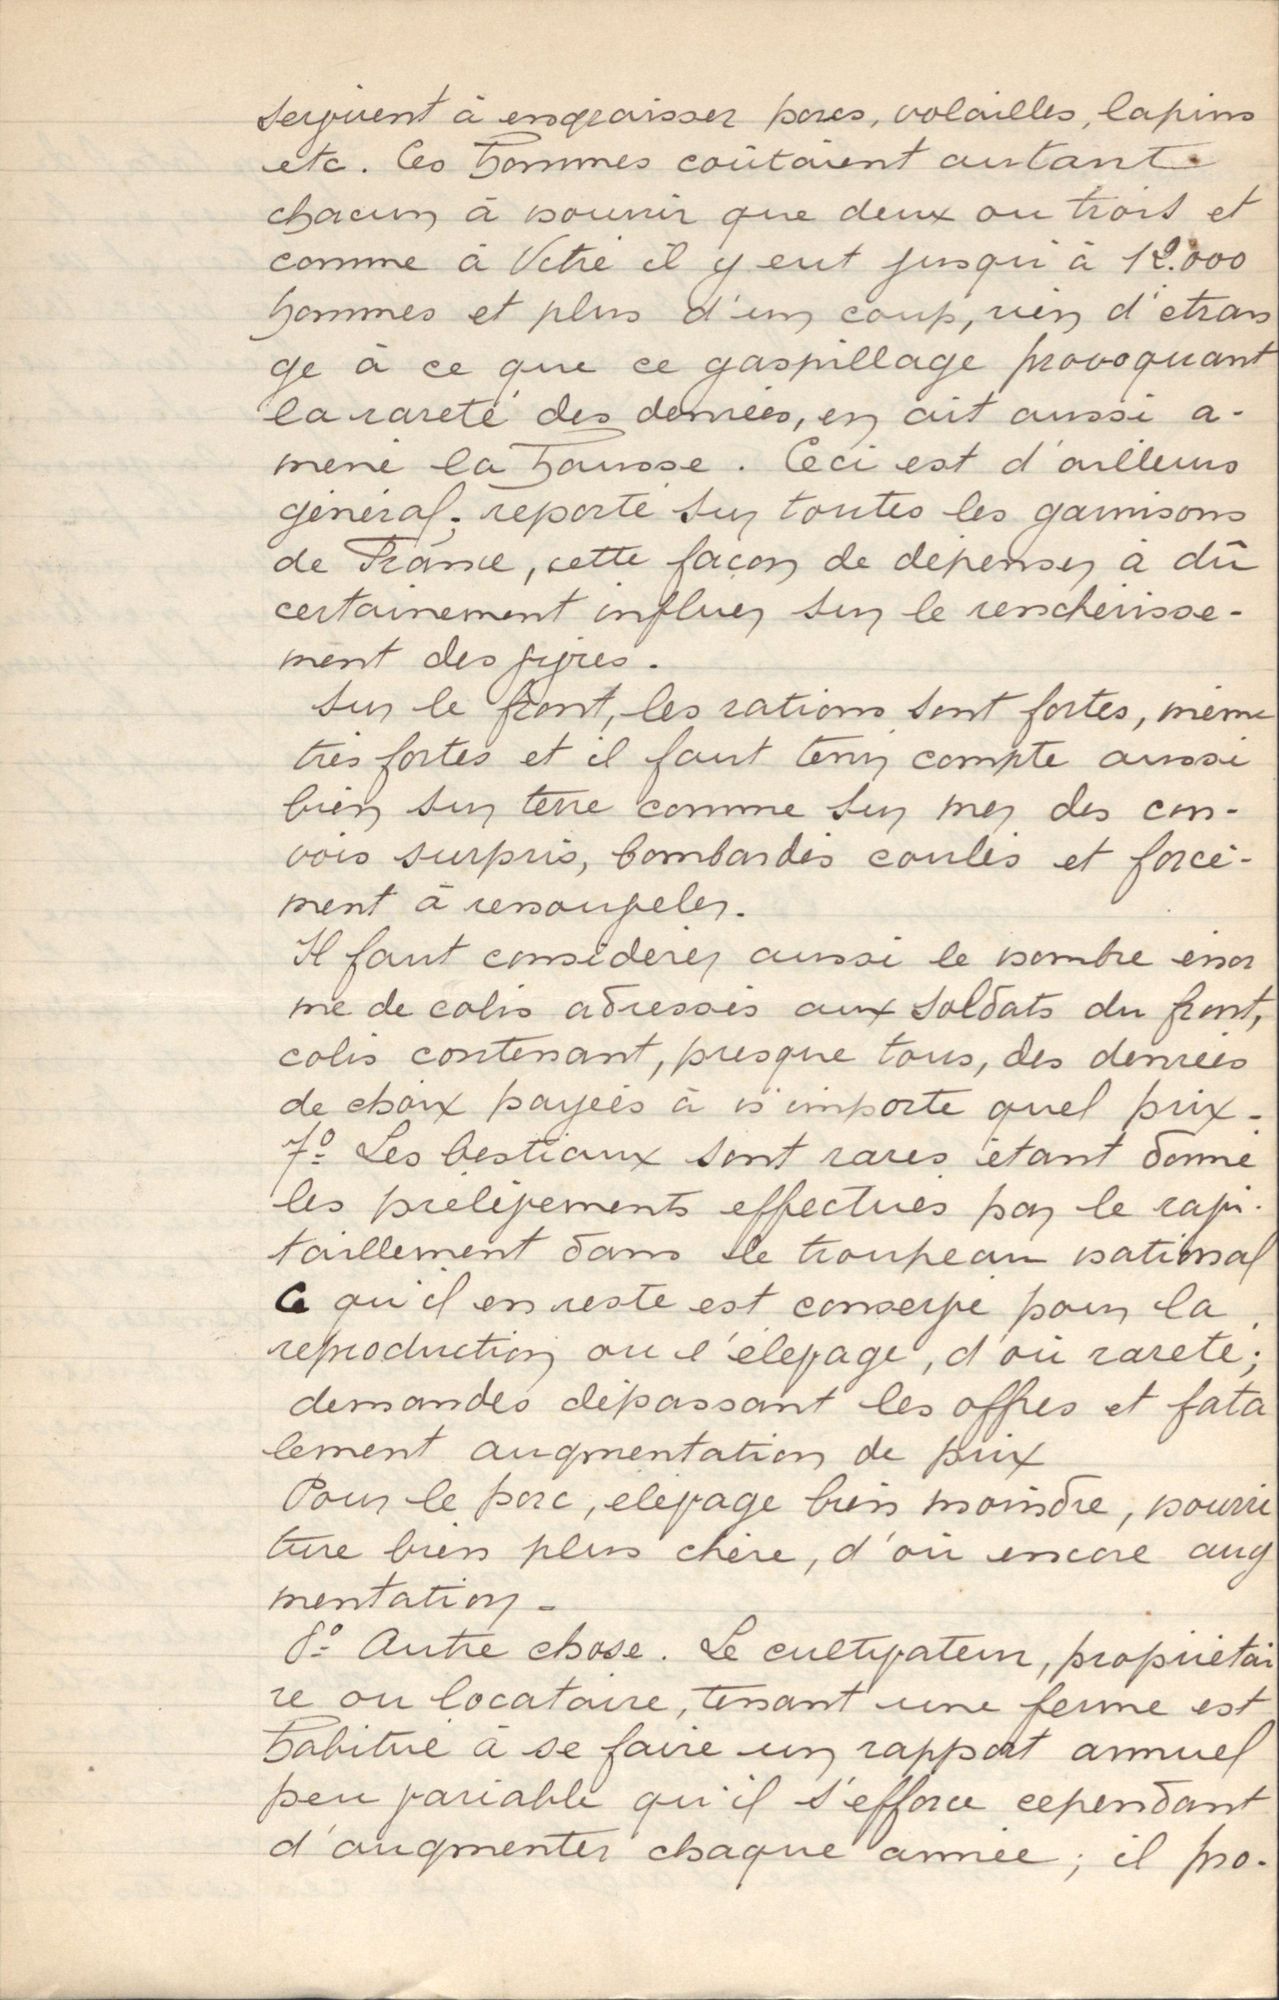 servirent à engraisser porcs, volailles, lapins
etc. Ces hommes coûtaient autant
chacun à nourrir que deux ou trois et
comme à Vitré il y eut jusqu'à 12.000
hommes et plus d'un coup, rien d'étran
ge à ce que ce gaspillage provoquant
la rareté des denrées, en ait aussi a-
mené la hausse. Ceci est d'ailleurs
général; reporté sur toutes les garnisons
de France, cette façon de dépenser à dû
certainement influer sur le renchérisse-
ment des vivres.
Sur le front, les rations sont fortes, même
très fortes et il faut tenir compte aussi
bien sur terre comme sur mer des con-
vois surpris, bombardés coulés et forcé-
ment à renouveler.
Il faut considérer aussi le nombre énor
me de colis adressés aux soldats du front,
colis contenant, presque tous, des denrées
de choix payées à n'importe quel prix-
7º- Les bestiaux sont rares étant donné
les prélèvements effectués par le ravi-
taillement dans le troupeau national
Ce qu'il en reste est conservé pour la
reproduction ou l'élevage, d'où rareté;
demandes dépassant les offres et fata
lement augmentation de prix
Pour le porc, élevage bien moindre, nourri
ture bien plus chère, d'où encore aug
mentation-
8º- Autre chose. Le cultivateur, propriétai
re ou locataire, tenant une ferme est
habitué à se faire un rapport annuel
peu variable qu'il s'efforce cependant
d'augmenter chaque année; il pro-